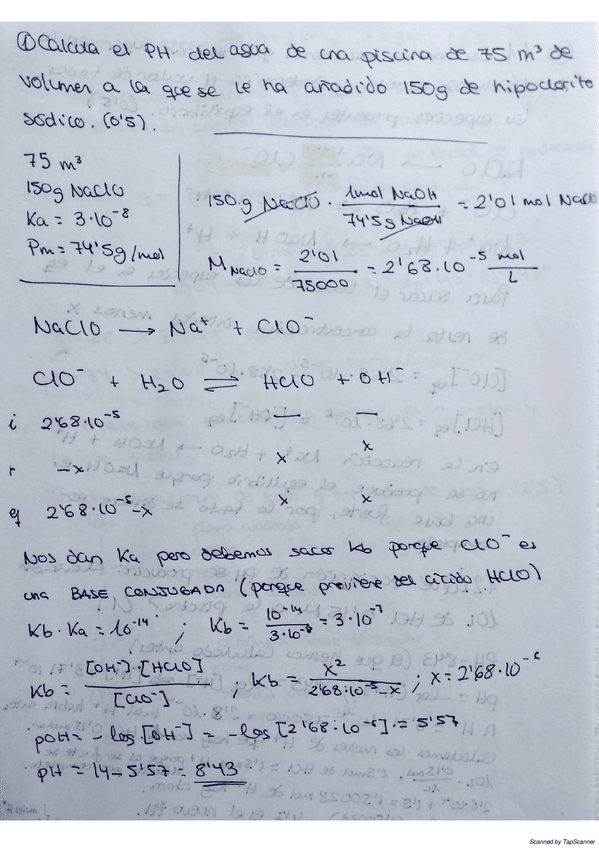 ① Calcula el PH del agua de una piscina de 75 m³ de
volumen a la que se le ha añadido 150g de hipoclorito
sódico. (0'5).
75 m³
150g NaClO
Ka = 3·10⁻⁸
Pm = 74'5g/mol
150 g NaClO · 1mol NaOH / 74'5g NaOH = 2'01 mol NaClO
M NaClO = 2'01 / 75000 = 2'68·10⁻⁵ mol / L
NaClO → Na⁺ + ClO⁻
ClO⁻ + H₂O ⇌ HClO + OH⁻
i 2'68·10⁻⁵ — —
r -x x x
eq 2'68·10⁻⁵-x x x
Nos dan Ka pero debemos sacar Kb porque ClO⁻ es
una BASE CONJUGADA (porque proviene del ácido HClO)
Kb · Ka = 10⁻¹⁴ ; Kb = 10⁻¹⁴ / 3·10⁻⁸ = 3·10⁻⁷
Kb = [OH⁻]·[HClO] / [ClO⁻] ; Kb = x² / 2'68·10⁻⁵-x ; x = 2'68·10⁻⁶
pOH = -log [OH⁻] = -log [2'68·10⁻⁶] = 5'57
pH = 14 - 5'57 = 8'43
Scanned by TapScanner